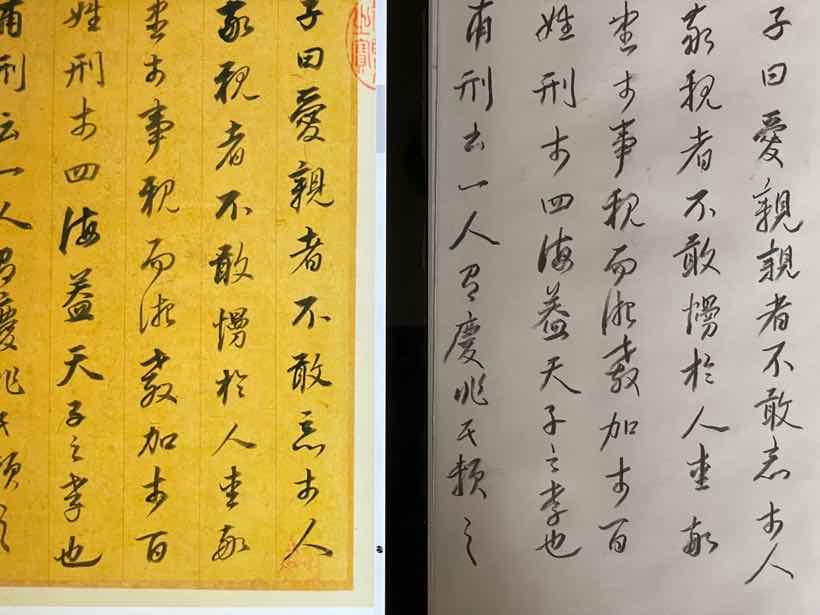 子曰愛親者不敢惡於人
敬親者不敢慢於人愛敬
盡於事親而德教加於百
姓刑於四海蓋天子之孝也
甫刑云一人有慶兆民賴之
子曰愛親親者不敢惡於人
敬親者不敢慢於人愛敬
盡於事親而德教加於百
姓刑於四海蓋天子之孝也
甫刑云一人有慶兆民賴之